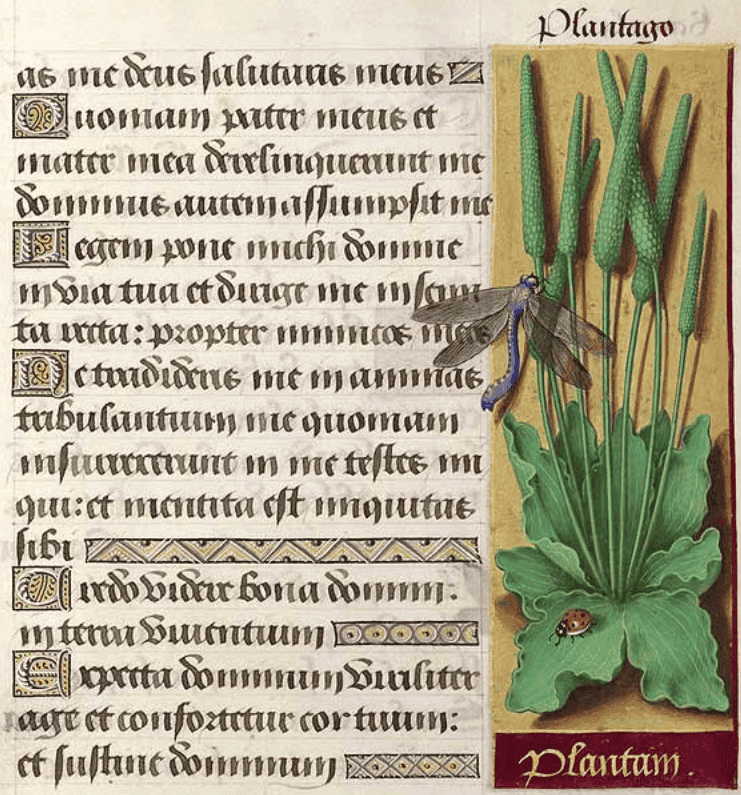 Plantago
as me deus salutaris meus
Quoniam pater meus et
mater mea derelinquerunt me
dominus autem assumpsit me
Legem pone michi domine
in via tua et dirige me in semi
ta recta: propter inimicos meos
Ne tradideris me in animas
tribulantium me quoniam
insurrexerunt in me testes ini
qui: et mentita est iniquitas
sibi
Credo videre bona domini:
in terra viventium
Expecta dominum viriliter
age et confortetur cor tuum:
et sustine dominum
Plantain.